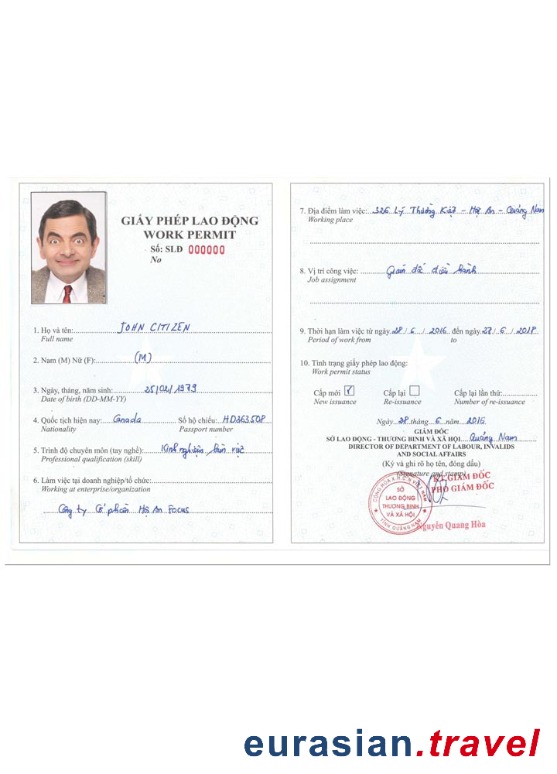 GIẤY PHÉP LAO ĐỘNG
WORK PERMIT
Số: SLĐ 000000
No
1. Họ và tên: JOHN CITIZEN
Full name
2. Nam (M) Nữ (F): (M)
3. Ngày, tháng, năm sinh: 25/02/1979
Date of birth (DD-MM-YY)
4. Quốc tịch hiện nay: Canada Số hộ chiếu: HD363508
Nationality Passport number
5. Trình độ chuyên môn (tay nghề):
Professional qualification (skill)
6. Làm việc tại doanh nghiệp/tổ chức:
Working at enterprise/organization
Công ty Cổ phần Hội An FOCUS
7. Địa điểm làm việc: 326 Lý Thường Kiệt - Hội An - Quảng Nam
Working place
8. Vị trí công việc: Giám đốc điều hành
Job assignment
9. Thời hạn làm việc từ ngày 28/6/2016 đến ngày 27/6/2018
Period of work from to
10. Tình trạng giấy phép lao động:
Work permit status
Cấp mới Cấp lại Cấp lại lần thứ:
New issuance Re-issuance Number of re-issuance
Ngày 28 tháng 6 năm 2016
GIÁM ĐỐC
SỞ LAO ĐỘNG - THƯƠNG BINH VÀ XÃ HỘI Quảng Nam
DIRECTOR OF DEPARTMENT OF LABOUR, INVALIDS
AND SOCIAL AFFAIRS
(Ký và ghi rõ họ tên, đóng dấu)
(Signature and stamp)
KT. GIÁM ĐỐC
PHÓ GIÁM ĐỐC
SỞ
LAO ĐỘNG
THƯƠNG BINH
VÀ XÃ HỘI
TỈNH QUẢNG NAM
Nguyễn Quang Hòa
eurasian.travel